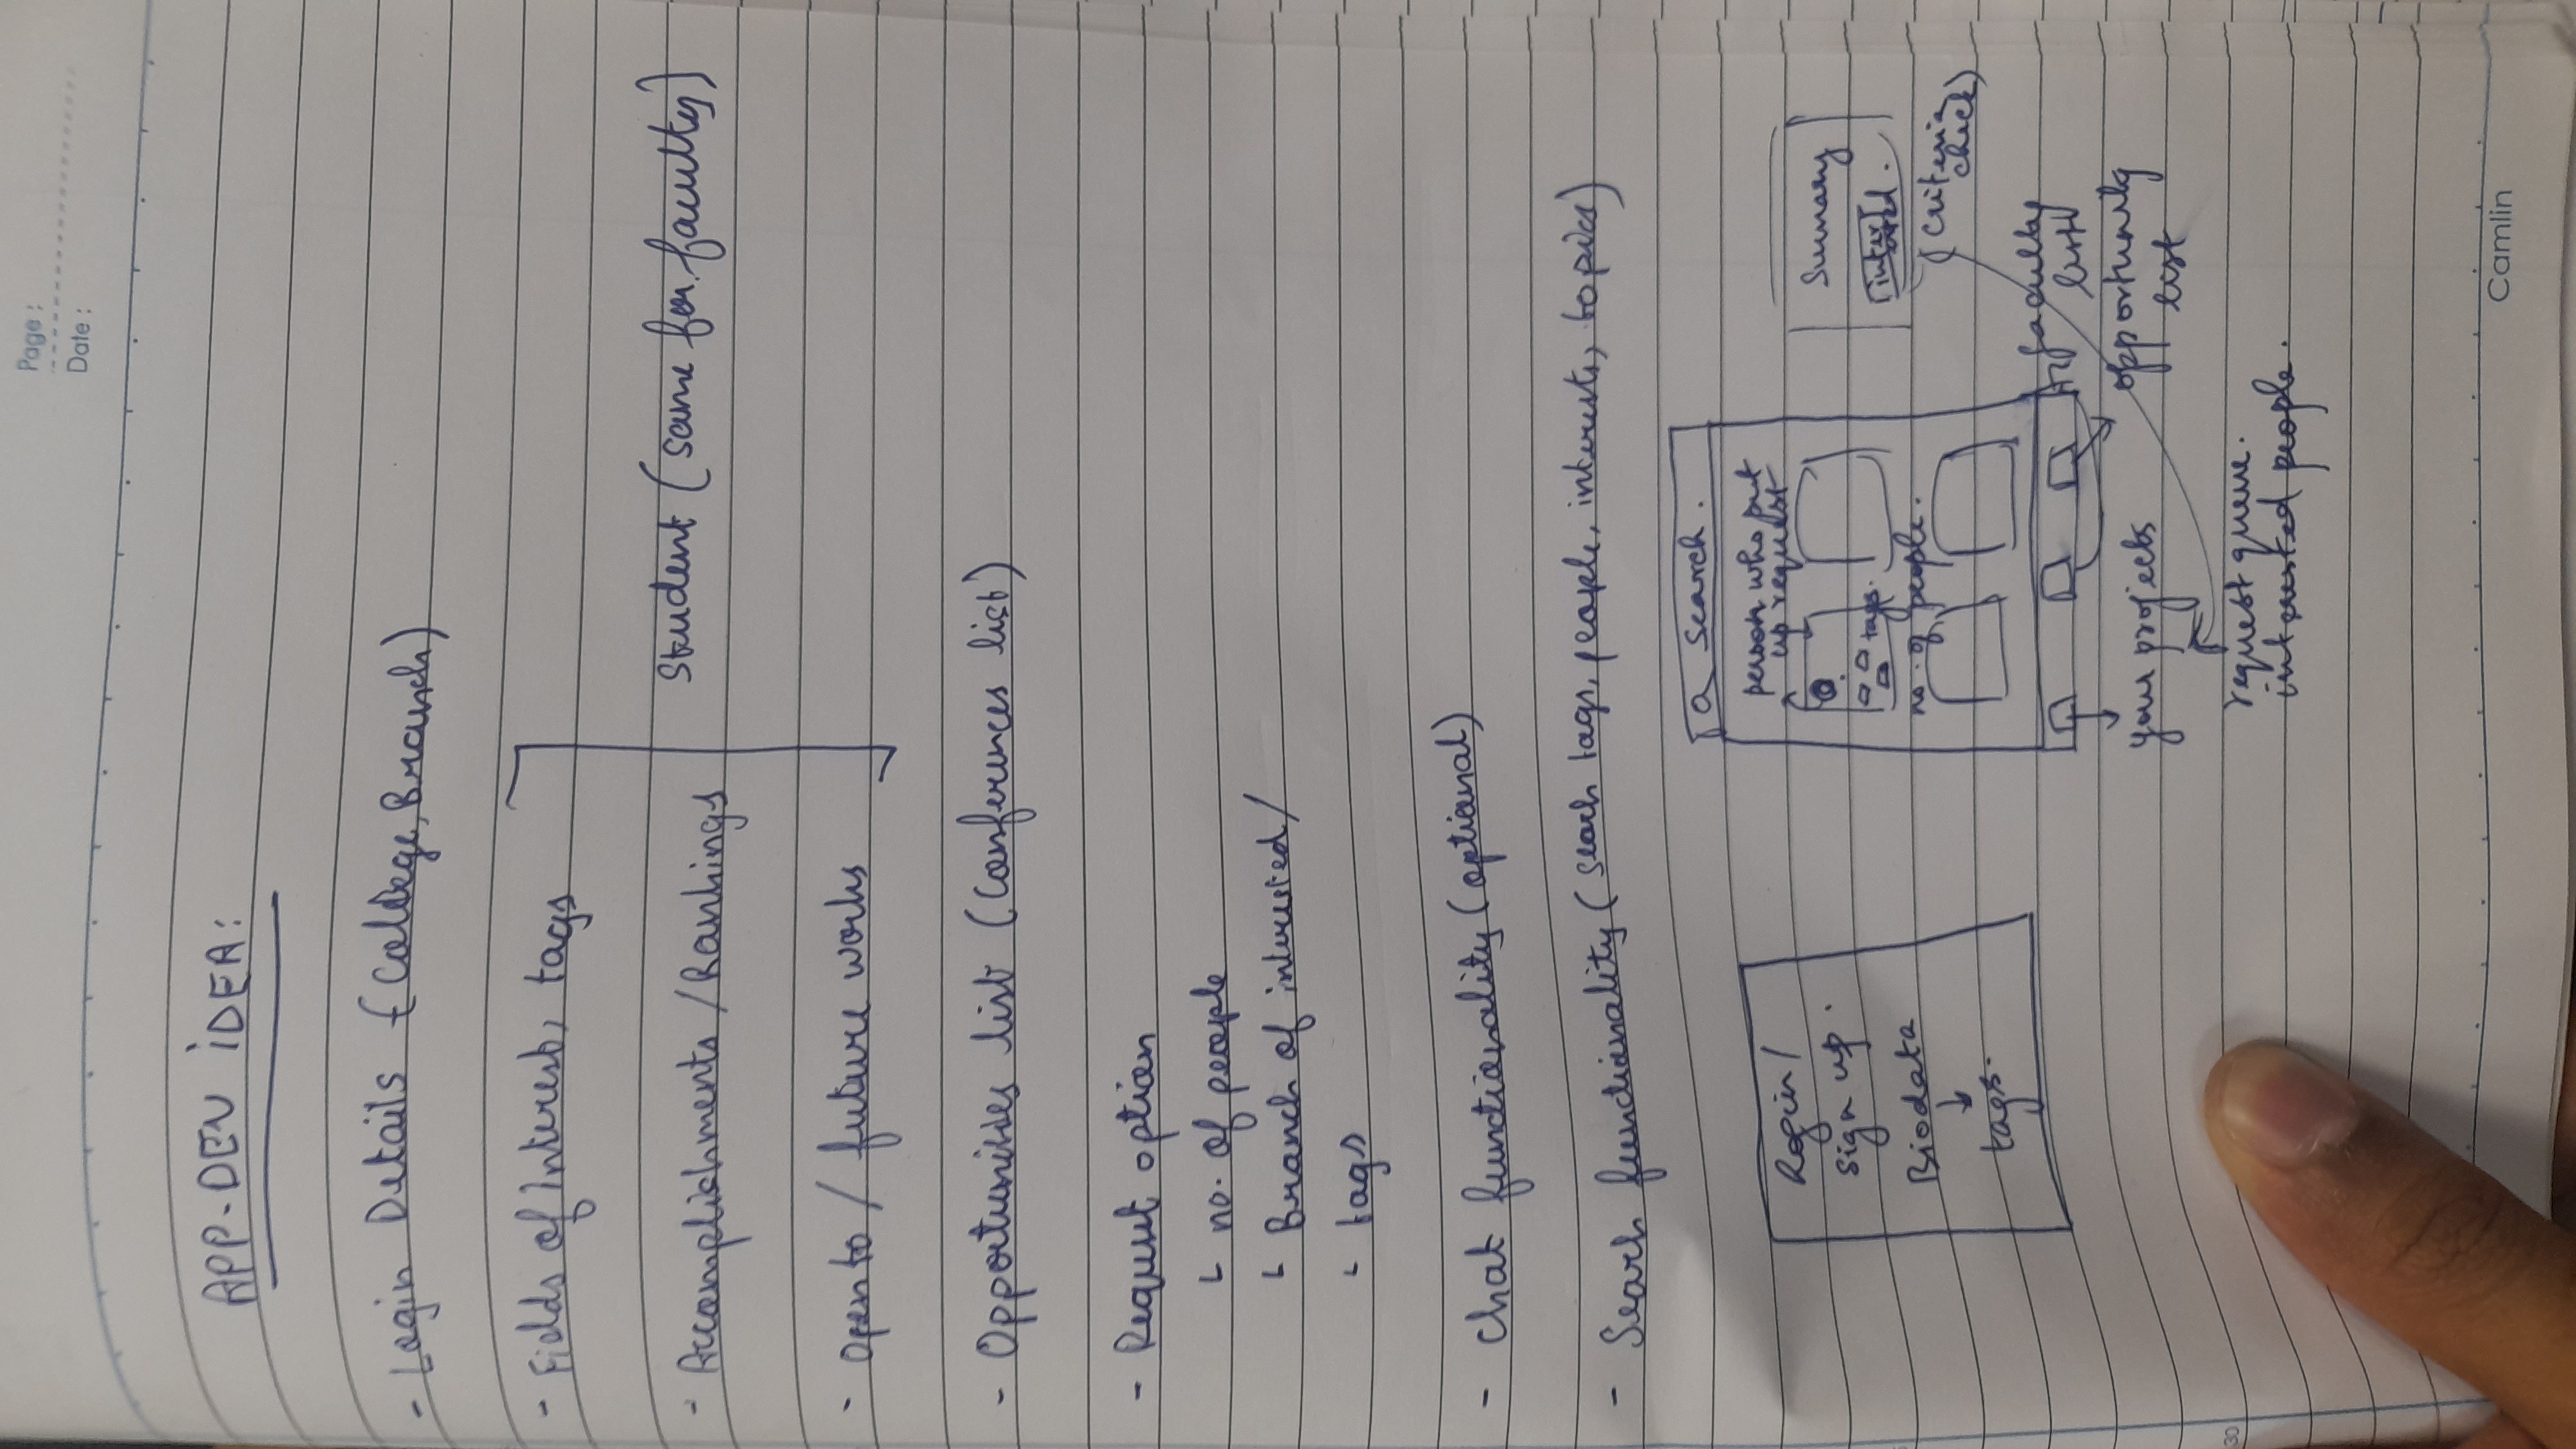 Page :
Date :
APP-DEV iDEA:
- Login Details (College, Branch)
- Fields of Interest, tags
- Accomplishments / Rankings
Student (same for faculty)
- Open to / future works
- Opportunities list (Conferences list)
- Request option
└ no. of people
└ Branch of interested /
└ tags
- Chat functionality (optional)
- Search functionality (search tags, people, interests, topics)
Login /
Sign up.
Biodata
↓
tags.
Search.
person who put
up request
tags.
no. of people.
Summary
interested.
(criteria
check)
faculty
list
your projects
opportunity
list
request queue.
interested people.
30
Camlin